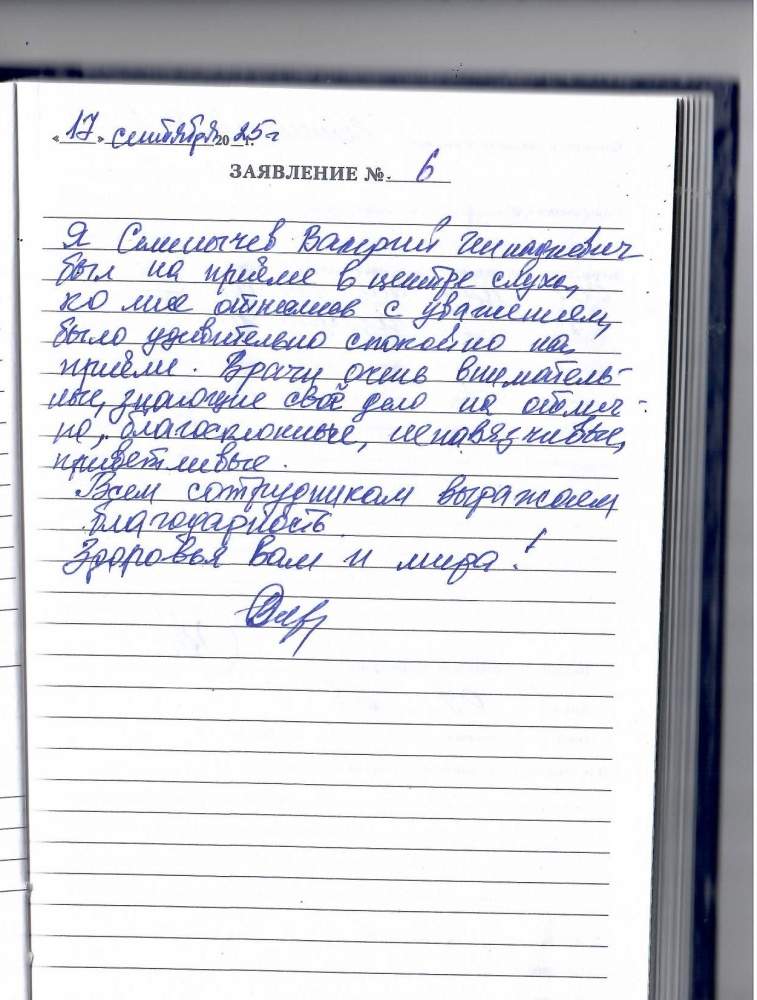 «17» сентября 2025 г.
ЗАЯВЛЕНИЕ № 6
Я Селенычев Валерий Геннадиевич
был на приёме в центре слуха,
ко мне отнеслись с уважением,
было удивительно спокойно на
приёме. Врачи очень вниматель-
ные, знающие своё дело на отлич-
но, благосклонные, ненавязчивые,
приветливые.
Всем сотрудникам выражаем
благодарность.
Здоровья Вам и мира!